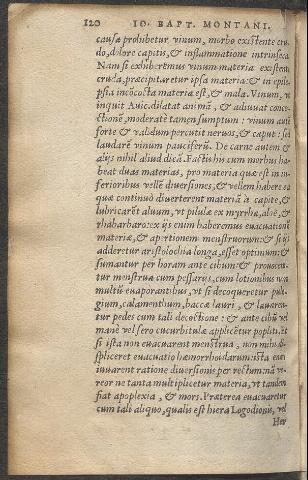 120 IO. BAPT. MONTANI.
causa prohibetur vinum, morbo existente cru-
do, dolore capitis, & inflammatione intrinseca
Nam si exhiberemus vinum materia existente
cruda, præcipitaretur ipsa materia: & in epile-
psia incōcocta materia est, & mala. Vinum, vt
inquit Auic. dilatat animā, & adiuuat conco-
ctionē, moderatè tamen sumptum: vinum autē
forte & validum percutit neruos, & caput: sed
laudarē vinum pauciferū. De carne autem &
alijs nihil aliud dicā. Factis hic cum morbus ha-
beat duas materias, pro materia quæ est in in-
ferioribus vellē diuersiones, & vellem habere ea
quæ continuò diuerterent materiā à capite, &
lubricarēt aluum, vt pilulæ ex myrrha, aloë, &
rhabarbaro: ex ijs enim haberemus euacuationē
materiæ, & apertionem menstruorum: & si ijs
adderetur aristolochia longa, esset optimum: &
sumantur per horam ante cibum: & prouocen-
tur menstrua cum pessarijs, cum lotionibus non
multū euaporantibus, vt si decoqueretur pule-
gium, calamenthum, baccæ lauri, & lauaren-
tur pedes cum tali decoctione: & ante cibū vel
manè vel sero cucurbitulæ applicētur popliti. Et
si ista non euacuarent menstrua, non mihi di-
spliceret euacuatio hæmorrhoidarum: ista enim
iuuarent ratione diuersionis per rectum: nā ve-
reor ne tanta multiplicetur materia, vt tandem
fiat apoplexia, & mors. Præterea euacuaretur
cum tali aliquo, qualis est hiera Logodionis, vel
Her